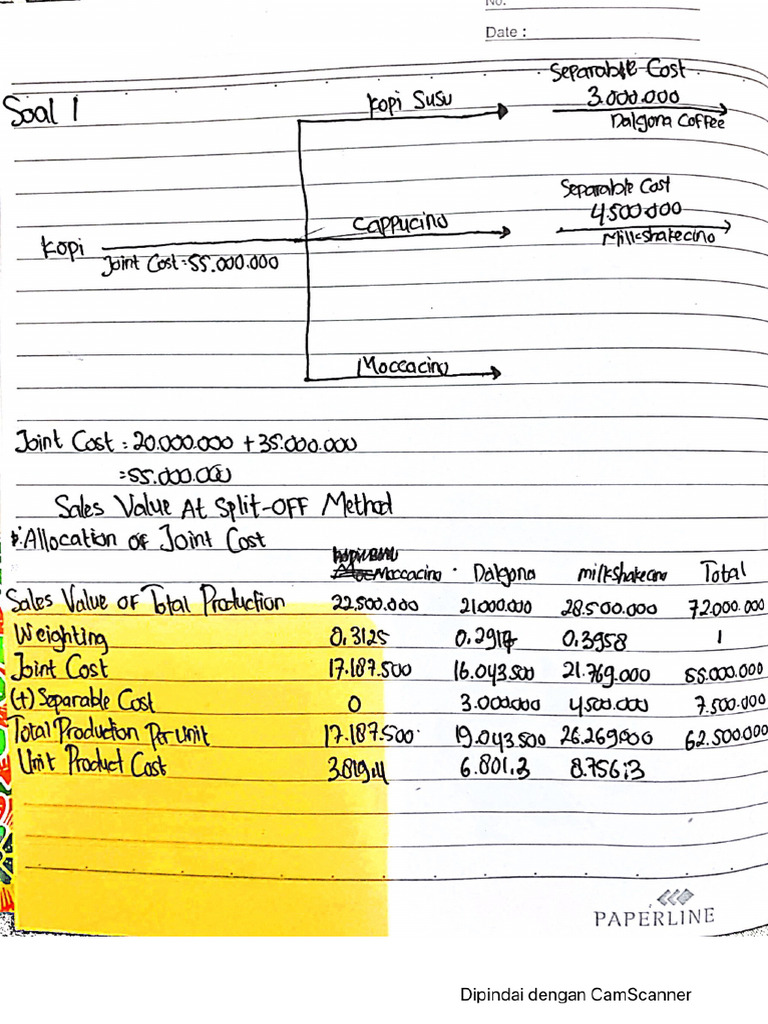 No.
Date :
Soal 1
Kopi Susu
Separable Cost
3.000.000
Dalgona Coffee
Cappucino
Separable Cost
4.500.000
Milkshakecino
Kopi
Joint Cost = 55.000.000
Moccacino
Joint Cost = 20.000.000 + 35.000.000
= 55.000.000
Sales Value At Split-OFF Method
Allocation of Joint Cost
Moccacino Dalgona milkshakecino Total
Sales Value Of Total Production 22.500.000 21.000.000 28.500.000 72.000.000
Weighting 0.3125 0.2917 0.3958 1
Joint Cost 17.187.500 16.043.500 21.769.000 55.000.000
(+) Separable Cost 0 3.000.000 4.500.000 7.500.000
Total Production Per unit 17.187.500 19.043.500 26.269.000 62.500.000
Unit Product Cost 6.801.3 8.756,3
PAPERLINE
Dipindai dengan CamScanner